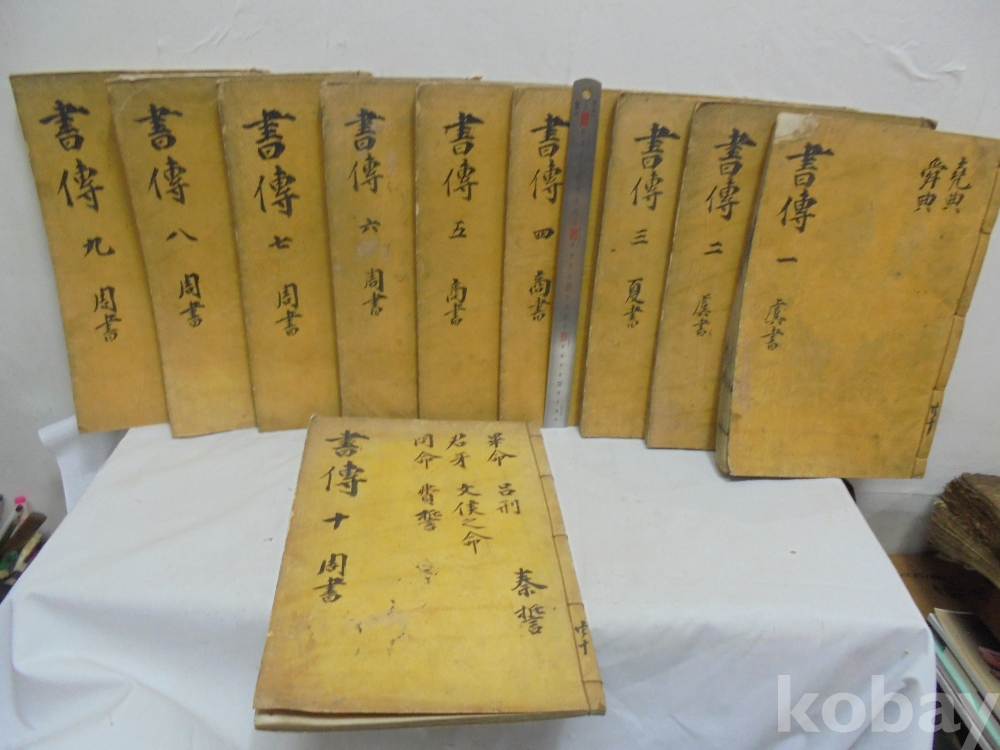 書傳 九 周書
書傳 八 周書
書傳 七 周書
書傳 六 周書
書傳 五 商書
書傳 四 商書
書傳 三 夏書
書傳 二 虞書
堯典
舜典
書傳 一 虞書
畢命 呂刑
君牙 文侯之命
冏命 費誓
秦誓
書傳 十 周書
共十
kobay